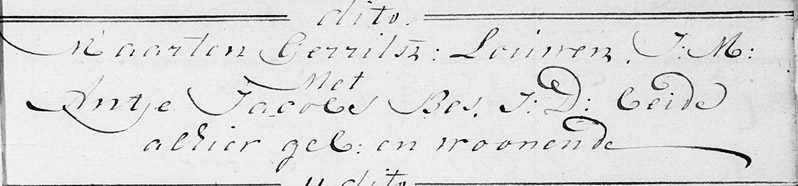 dito.
Maarten Gerritsz: Louwen, J: M:
Met
Antje Jacobs Bos, J: D: beide
alhier geb: en woonende
11 dito